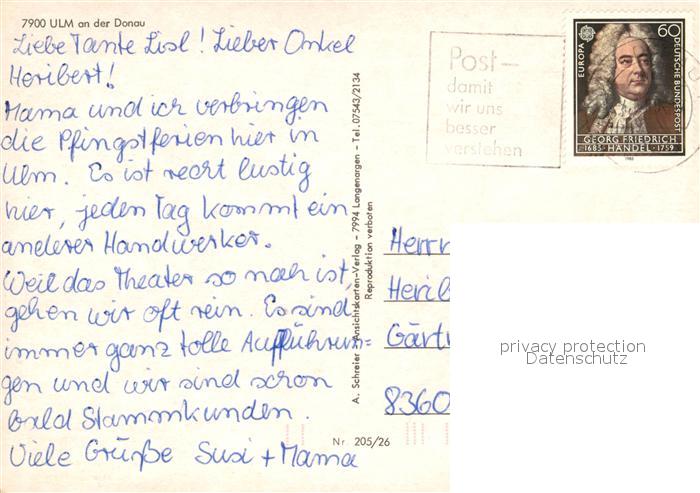 7900 ULM an der Donau
Liebe Tante Lisl! Lieber Onkel
Heribert!
Mama und ich verbringen
die Pfingstferien hier in
Ulm. Es ist recht lustig
hier, jeden Tag kommt ein
anderer Handwerker.
Weil das Theater so nah ist,
gehen wir oft rein. Es sind
immer ganz tolle Aufführun=
gen und wir sind schon
bald Stammkunden.
Viele Grüße Susi + Mama
A. Schreier - Ansichtskarten-Verlag - 7994 Langenargen - Tel. 07543/2134
Reproduktion verboten
Nr. 205/26
Post-
damit
wir uns
besser
verstehen
EUROPA
60
DEUTSCHE BUNDESPOST
GEORG FRIEDRICH
1685 · HÄNDEL · 1759
1985
Herrn
Herib
Gärtn
8360
privacy protection
Datenschutz